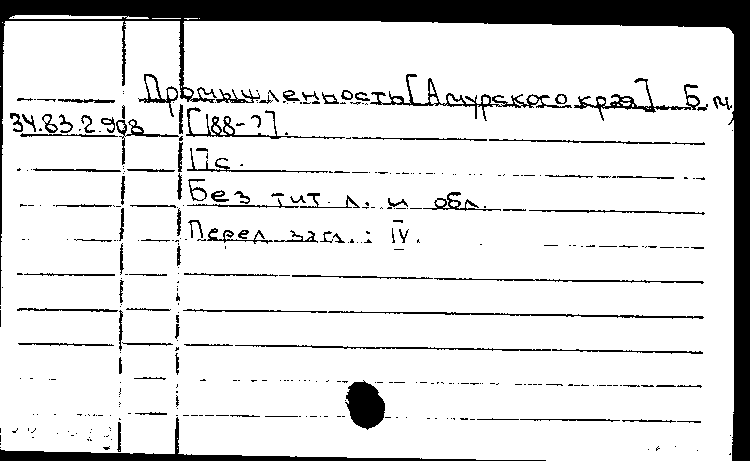 Промышленность [Амурского края] Б. м.,
34.83.2.908 [188-?].
17 с.
Без тит. л. и обл.
Перед загл.: IV.